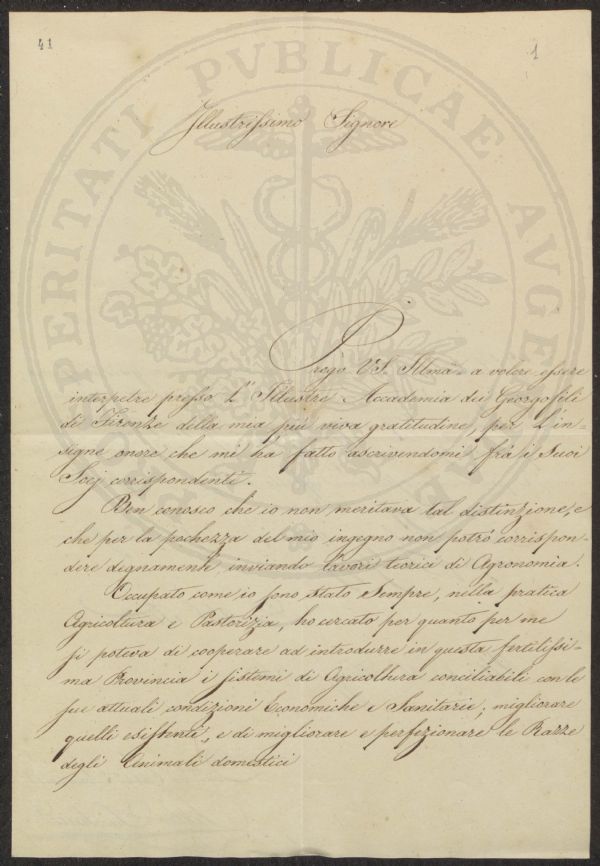 41
1
PROSPERITATI PVBLICAE AVGENDAE
Illustrissimo Signore
Prego V.S. Illma a volere essere
interpetre presso L' Illustre Accademia dei Georgofili
di Firenze della mia più viva gratitudine, per L'in-
signe onore che mi hà fatto ascrivendomi frà i Suoi
Socj corrispondenti.
Ben conosco che io non meritava tal distinzione, e
che per la pochezza del mio ingegno non potrò corrispon-
dere degnamente inviando lavori teorici di Agronomia.
Occupato come io sono stato sempre, nella pratica
Agricoltura e Pastorizia, ho cercato per quanto per me
si poteva di cooperare ad introdurre in questa fertilissi-
ma Provincia i sistemi di Agricoltura conciliabili con le
sue attuali condizioni Economiche e Sanitarie; migliorare
quelli esistenti, e di migliorare e perfezionare le Razze
degli Animali domestici